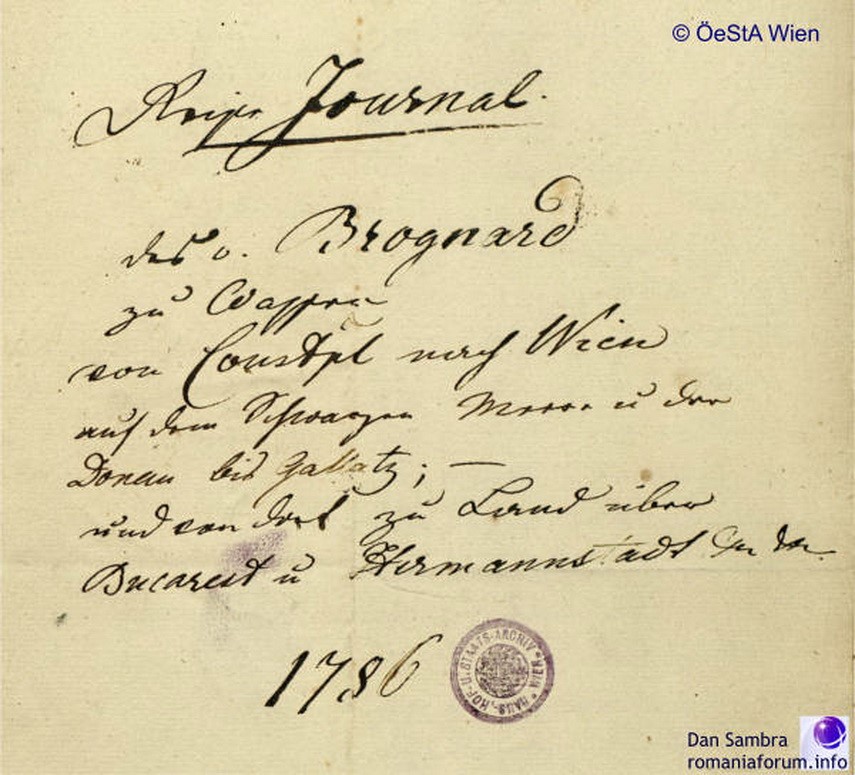 © ÖeStA Wien
Reise Journal.
des v. Brognard
zu Wasser
von Constpl nach Wien
auf dem Schwarzen Meere u der
Donau bis Gallatz; —
und von dort zu Land über
Bucarest u Hermannstadt
1786
HAUS-, HOF- U. STAATS-ARCHIV * WIEN *
Dan Sambra
romaniaforum.info